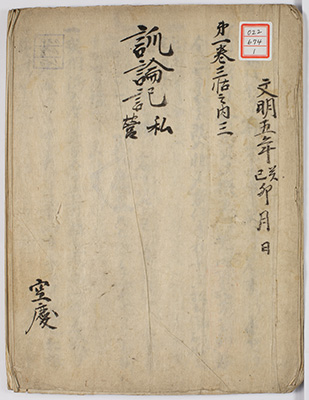 文明五年癸巳卯月日
022
674
1
第一巻三帖之内三
訓論記私
空慶